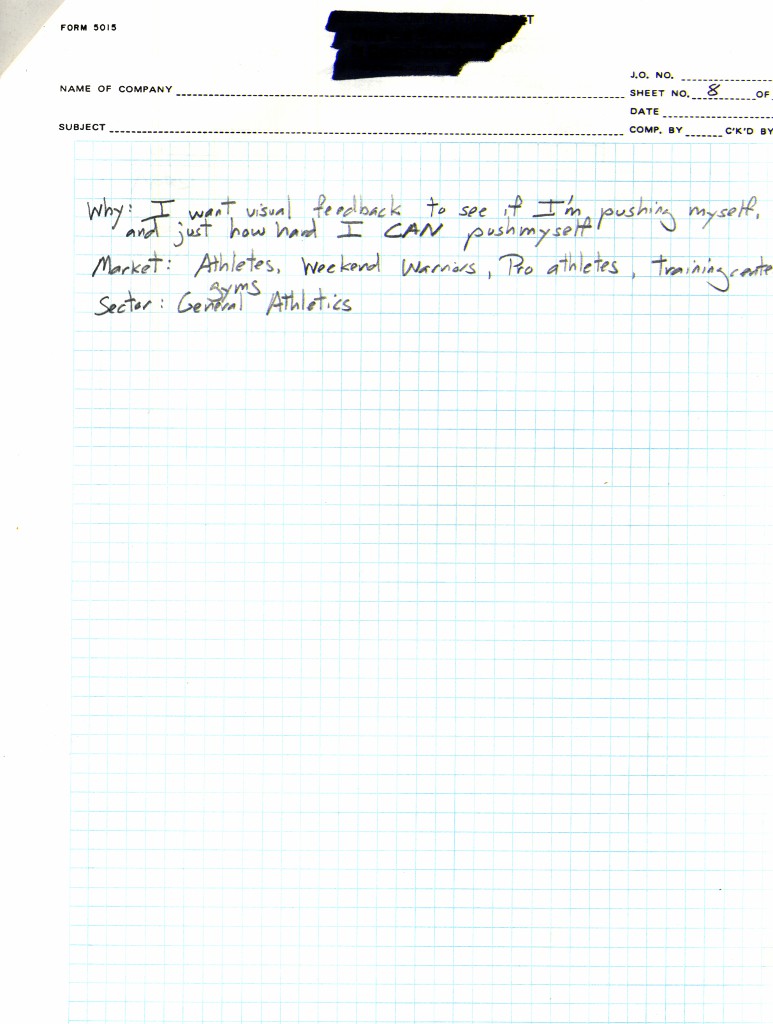 FORM 5015
T
J.O. NO.
NAME OF COMPANY
SHEET NO. 8 OF
DATE
SUBJECT
COMP. BY C'K'D BY
Why: I want visual feedback to see if I'm pushing myself,
and just how hard I CAN pushmyself
Market: Athletes, Weekend Warriors, Pro athletes, training cente
gyms
Sector: General Athletics